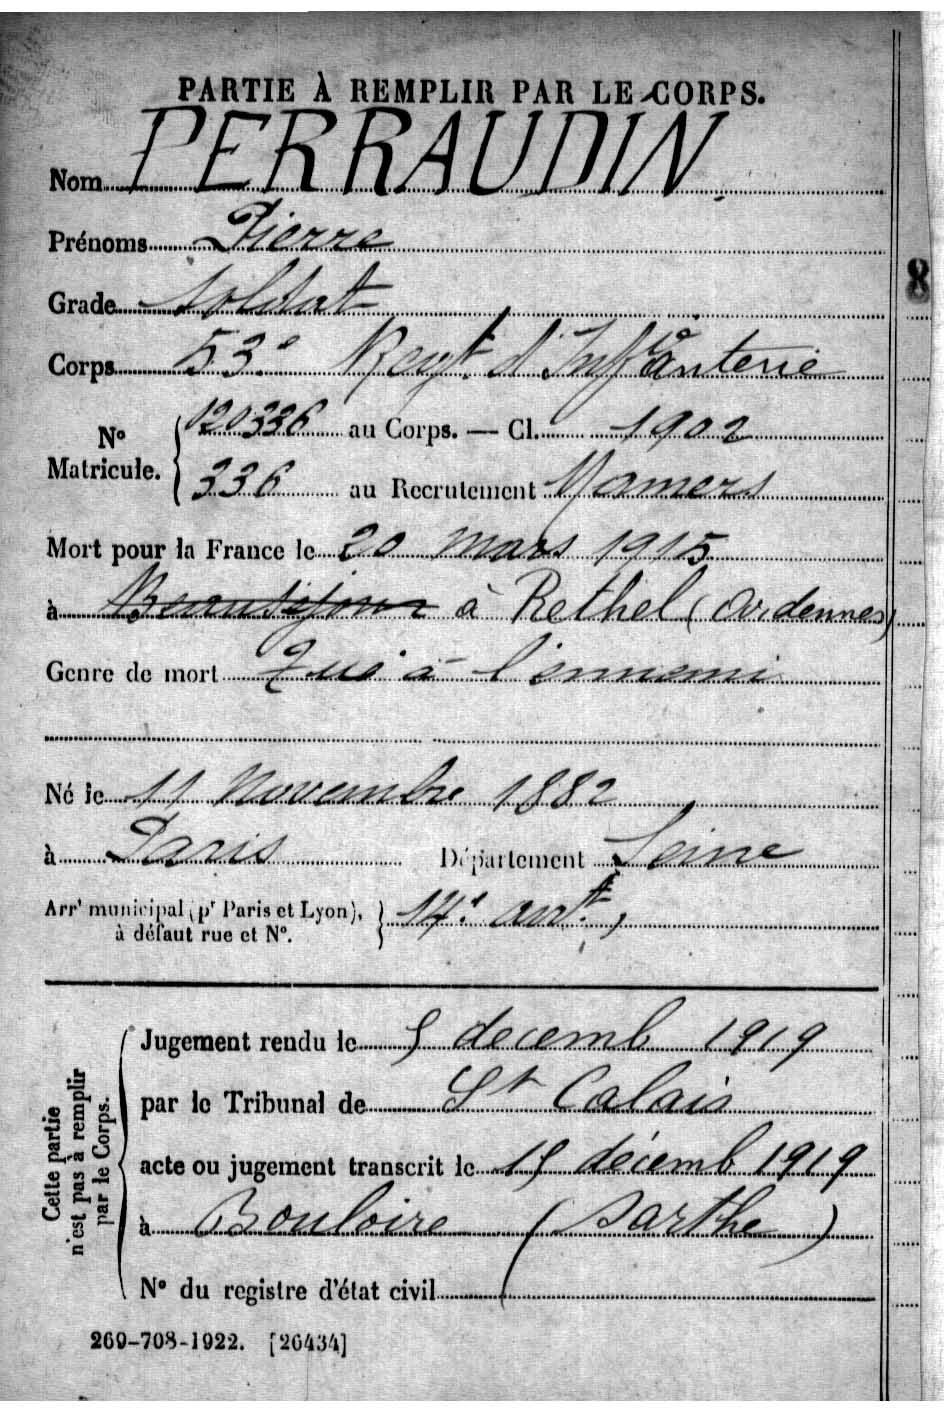 PARTIE À REMPLIR PAR LE CORPS.
Nom PERRAUDIN
Prénoms Pierre
8
Grade soldat
Corps 53e Regt. d'Infanterie
No Matricule. 120336 au Corps. — Cl. 1902
336 au Recrutement Mamers
Mort pour la France le 20 mars 1915
à Beauséjour à Rethel (Ardennes)
Genre de mort Tué à l'ennemi
Né le 11 Novembre 1882
à Paris Département Seine
Arrt municipal (pr Paris et Lyon), à défaut rue et No. 14e arrt.
Cette partie n'est pas à remplir par le Corps.
Jugement rendu le 5 decemb 1919
par le Tribunal de St Calais
acte ou jugement transcrit le 15 décemb 1919
à Bouloire (Sarthe)
No du registre d'état civil
269-708-1922. [26434]